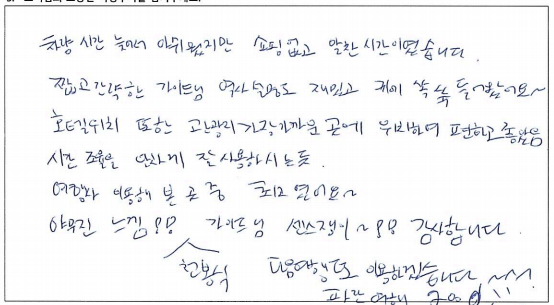 차량 시간 늦어서 아쉬웠지만 쇼핑없고 알찬시간이였습니다.
짧고간략한 가이드님 역사설명도 재밌고 귀에 쏙쏙 들어왔어요~
호텔위치 또한 관광지 가장가까운 곳에 위치하여 편하고 좋았음
시간 조율을 잘 사용하시는듯.
여행사 이용해 본 곳 중 최고였어요~
야무진 느낌!! 가이드님 센스쟁이~!! 감사합니다.
현봉식 다음여행도 이용하겠습니다 ~~
파란여행 Good!!!